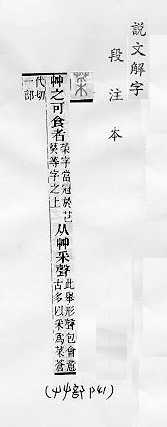 說文解字
段注本
菜
艸之可食者
菜字當冠於芑
葵等字之上
从艸采聲
此舉形聲包會意
古多以采爲菜蒼
代切
一部
(艸部 P41)